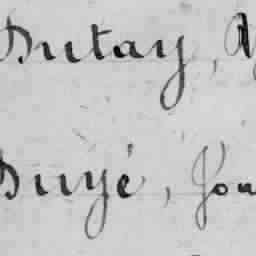 Dutay,
Duyé, Jou